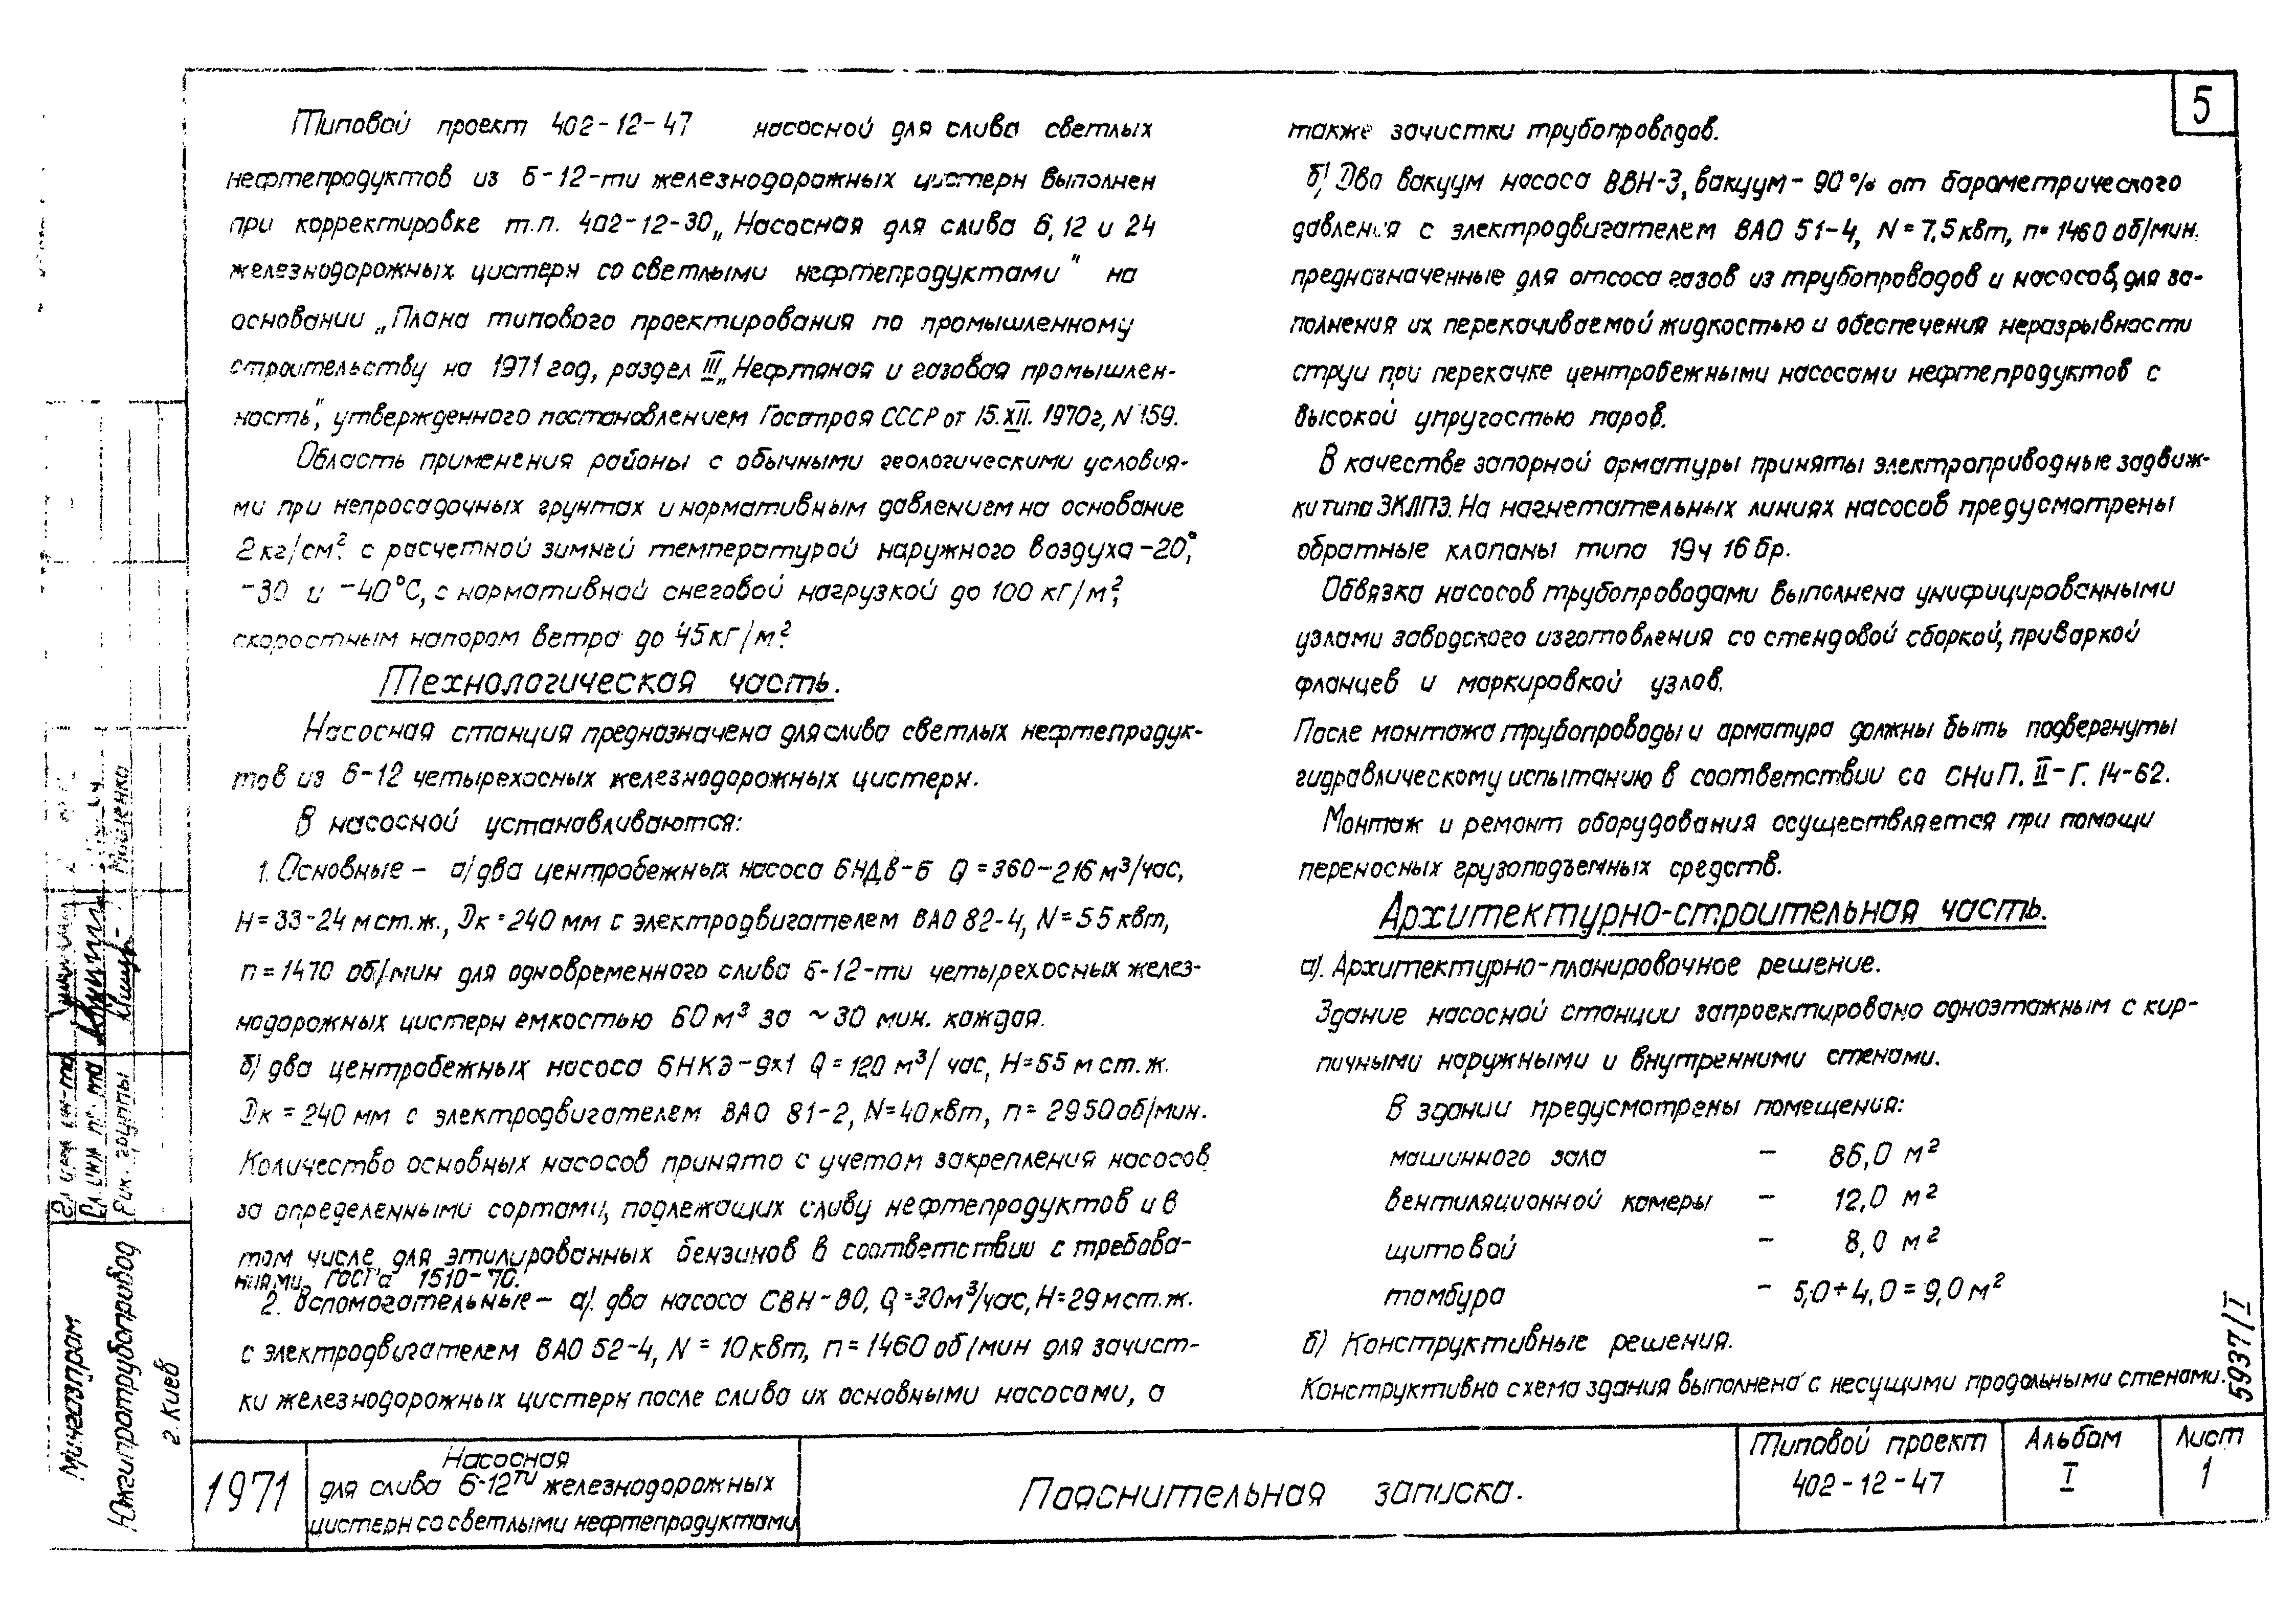 5
Типовой проект 402-12-47 насосной для слива светлых
нефтепродуктов из 6-12-ти железнодорожных цистерн выполнен
при корректировке т.п. 402-12-30 „Насосная для слива 6, 12 и 24
железнодорожных цистерн со светлыми нефтепродуктами" на
основании „Плана типового проектирования по промышленному
строительству на 1971 год, раздел III „Нефтяная и газовая промышлен-
ность", утвержденного постановлением Госстроя СССР от 15.XII. 1970г, N 159.
Область применения районы с обычными геологическими условия-
ми при непросадочных грунтах и нормативным давлением на основание
2 кг/см². с расчетной зимней температурой наружного воздуха -20°,
-30 и -40°С, с нормативной снеговой нагрузкой до 100 кг/м²,
скоростным напором ветра до 45 кг/м²
Технологическая часть.
Насосная станция предназначена для слива светлых нефтепродук-
тов из 6-12 четырехосных железнодорожных цистерн.
В насосной устанавливаются:
1. Основные - а/ два центробежных насоса 6НДв-Б Q = 360-216 м³/час,
Н = 33-24 м ст.ж., Dк = 240 мм с электродвигателем ВАО 82-4, N = 55 квт,
п = 1470 об/мин для одновременного слива 6-12-ти четырехосных желез-
нодорожных цистерн емкостью 60 м³ за ~30 мин. каждая.
б) два центробежных насоса 6НКЭ-9х1 Q = 120 м³/час, Н=65 м ст.ж.
Dк = 240 мм с электродвигателем ВАО 81-2, N=40 квт, п = 2950 об/мин.
Количество основных насосов принято с учетом закрепления насосов
за определенными сортами, подлежащих сливу нефтепродуктов и в
том числе для этилированных бензинов в соответствии с требова-
ниями ГОСТ'а 1510-70.
2. Вспомогательные - а/. два насоса СВН-80, Q = 30 м³/час, Н=29 м ст.ж.
с электродвигателем ВАО 52-4, N = 10 квт, п = 1460 об/мин для зачист-
ки железнодорожных цистерн после слива их основными насосами, а
также зачистки трубопроводов.
б/ Два вакуум насоса ВВН-3, вакуум - 90% от барометрического
давления с электродвигателем ВАО 51-4, N = 7,5 квт, п = 1460 об/мин.
предназначенные для отсоса газов из трубопроводов и насосов, для за-
полнения их перекачиваемой жидкостью и обеспечения неразрывности
струи при перекачке центробежными насосами нефтепродуктов с
высокой упругостью паров.
В качестве запорной арматуры приняты электроприводные задвиж-
ки типа ЗКЛПЭ. На нагнетательных линиях насосов предусмотрены
обратные клапаны типа 19ч 16 бр.
Обвязка насосов трубопроводами выполнена унифицированными
узлами заводского изготовления со стендовой сборкой, приваркой
фланцев и маркировкой узлов.
После монтажа трубопроводы и арматура должны быть подвергнуты
гидравлическому испытанию в соответствии со СНиП. II-Г. 14-62.
Монтаж и ремонт оборудования осуществляется при помощи
переносных грузоподъемных средств.
Архитектурно-строительная часть.
а). Архитектурно-планировочное решение.
Здание насосной станции запроектировано одноэтажным с кир-
пичными наружными и внутренними стенами.
В здании предусмотрены помещения:
машинного зала - 86,0 м²
вентиляционной камеры - 12,0 м²
щитовой - 8,0 м²
тамбура - 5,0 + 4,0 = 9,0 м²
б) Конструктивные решения.
Конструктивно схема здания выполнена с несущими продольными стенами.
5937/I
Мищенко
Гл. инж. пр-та
Рук. группы
Мингазпром
Южгипротрубопровод
г. Киев
1971
Насосная
для слива 6-12ти железнодорожных
цистерн со светлыми нефтепродуктами
Пояснительная записка.
Типовой проект
402-12-47
Альбом
I
Лист
1